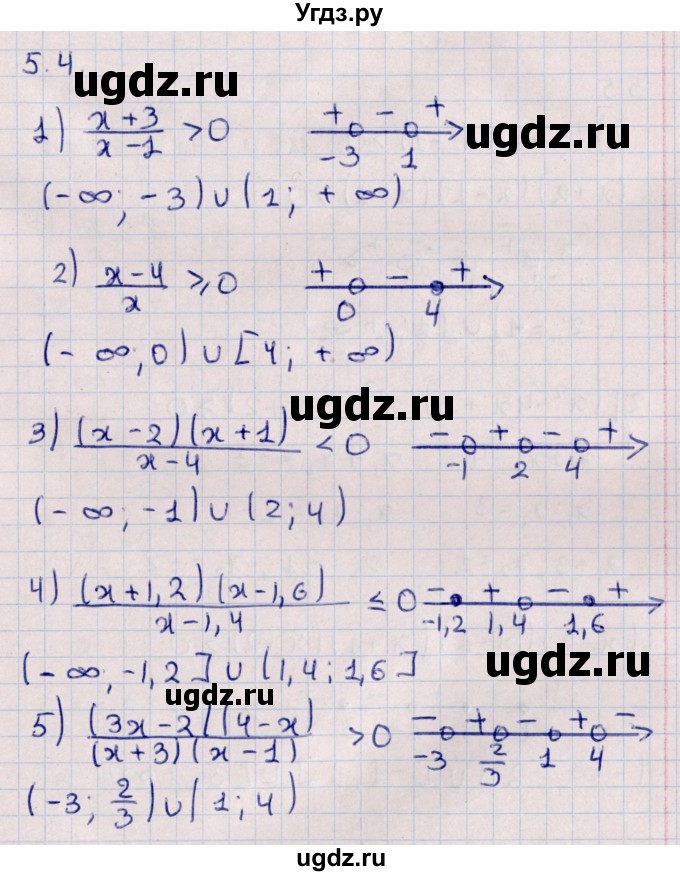 Угдз.ру
5.4
ugdz.ru
1) (x+3)/(x-1) > 0   + - +
-3 1
ugdz.ru
(-∞; -3) ∪ (1; +∞)
2) (x-4)/x ≥ 0   + - +
0 4
(-∞; 0) ∪ [4; +∞)
ugdz.ru
3) (x-2)(x+1)/(x-4) < 0   - + - +
-1 2 4
(-∞; -1) ∪ (2; 4)
4) (x+1,2)(x-1,6)/(x-1,4) ≤ 0   - + - +
-1,2 1,4 1,6
ugdz.ru
(-∞; -1,2] ∪ (1,4; 1,6]
ugdz.ru
5) (3x-2)(4-x)/(x+3)(x-1) > 0   - + - + -
-3 2/3 1 4
(-3; 2/3) ∪ (1; 4)
ugdz.ru
ugdz.ru